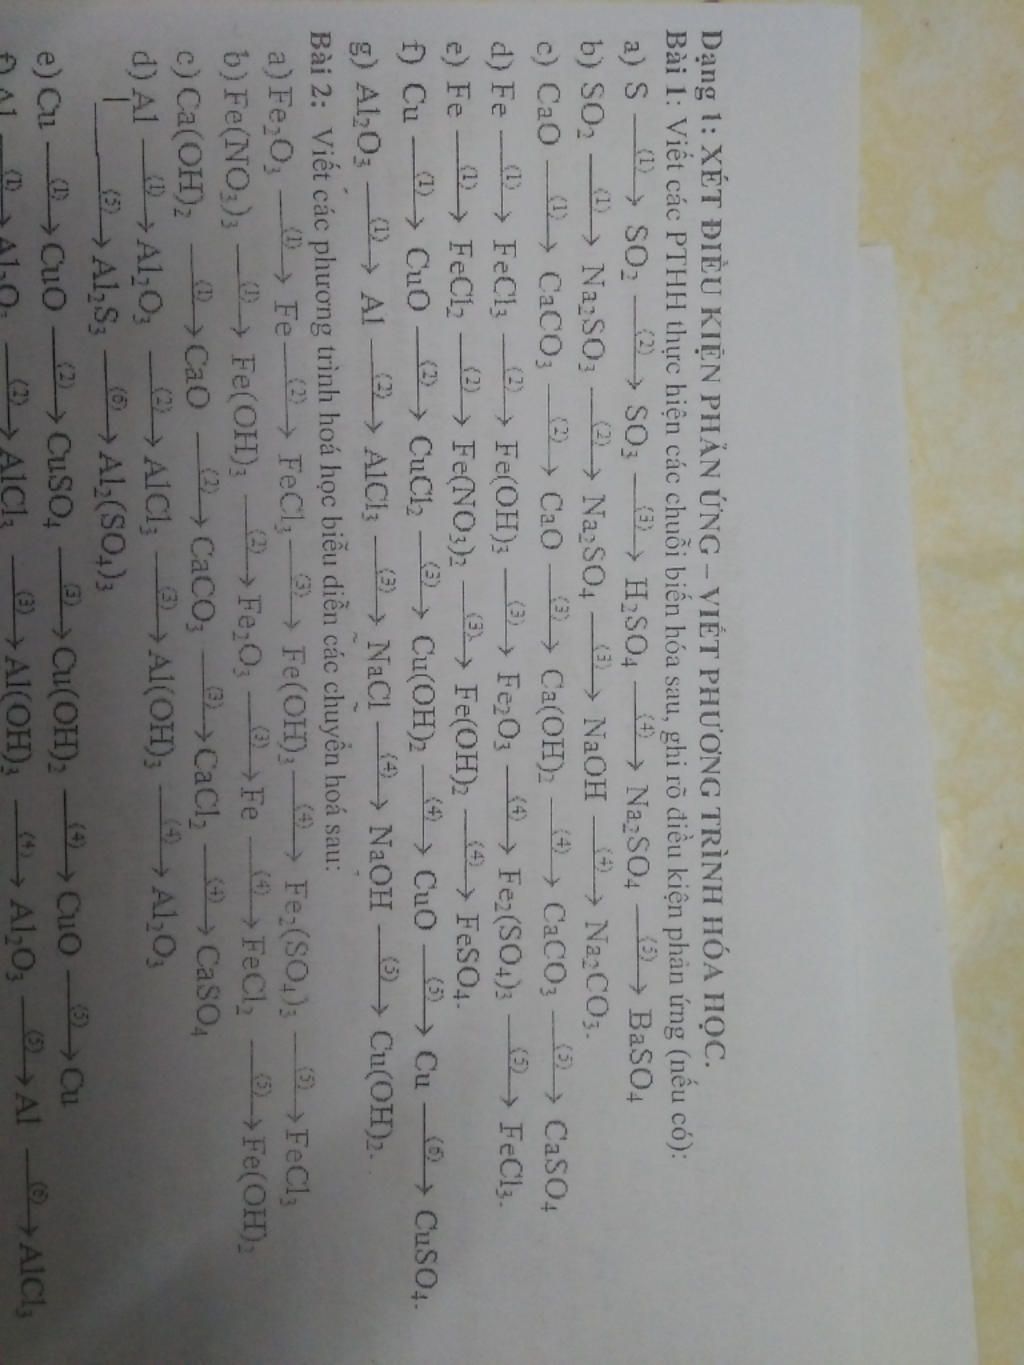 Dạng 1: XÉT ĐIỀU KIỆN PHẢN ỨNG – VIẾT PHƯƠNG TRÌNH HÓA HỌC.
Bài 1: Viết các PTHH thực hiện các chuỗi biến hóa sau, ghi rõ điều kiện phản ứng (nếu có):
a) S —(1)→ SO₂ —(2)→ SO₃ —(3)→ H₂SO₄ —(4)→ Na₂SO₄ —(5)→ BaSO₄
b) SO₂ —(1)→ Na₂SO₃ —(2)→ Na₂SO₄ —(3)→ NaOH —(4)→ Na₂CO₃.
c) CaO —(1)→ CaCO₃ —(2)→ CaO —(3)→ Ca(OH)₂ —(4)→ CaCO₃ —(5)→ CaSO₄
d) Fe —(1)→ FeCl₃ —(2)→ Fe(OH)₃ —(3)→ Fe₂O₃ —(4)→ Fe₂(SO₄)₃ —(5)→ FeCl₃.
e) Fe —(1)→ FeCl₂ —(2)→ Fe(NO₃)₂ —(3)→ Fe(OH)₂ —(4)→ FeSO₄.
f) Cu —(1)→ CuO —(2)→ CuCl₂ —(3)→ Cu(OH)₂ —(4)→ CuO —(5)→ Cu —(6)→ CuSO₄.
g) Al₂O₃ —(1)→ Al —(2)→ AlCl₃ —(3)→ NaCl —(4)→ NaOH —(5)→ Cu(OH)₂.
Bài 2: Viết các phương trình hoá học biễu diễn các chuyển hoá sau:
a) Fe₂O₃ —(1)→ Fe —(2)→ FeCl₃ —(3)→ Fe(OH)₃ —(4)→ Fe₂(SO₄)₃ —(5)→ FeCl₃
b) Fe(NO₃)₃ —(1)→ Fe(OH)₃ —(2)→ Fe₂O₃ —(3)→ Fe —(4)→ FeCl₂ —(5)→ Fe(OH)₂
c) Ca(OH)₂ —(1)→ CaO —(2)→ CaCO₃ —(3)→ CaCl₂ —(4)→ CaSO₄
d) Al —(1)→ Al₂O₃ —(2)→ AlCl₃ —(3)→ Al(OH)₃ —(4)→ Al₂O₃
—(5)→ Al₂S₃ —(6)→ Al₂(SO₄)₃
e) Cu —(1)→ CuO —(2)→ CuSO₄ —(3)→ Cu(OH)₂ —(4)→ CuO —(5)→ Cu
f) Al —(1)→ Al₂O₃ —(2)→ AlCl₃ —(3)→ Al(OH)₃ —(4)→ Al₂O₃ —(5)→ Al —(6)→ AlCl₃